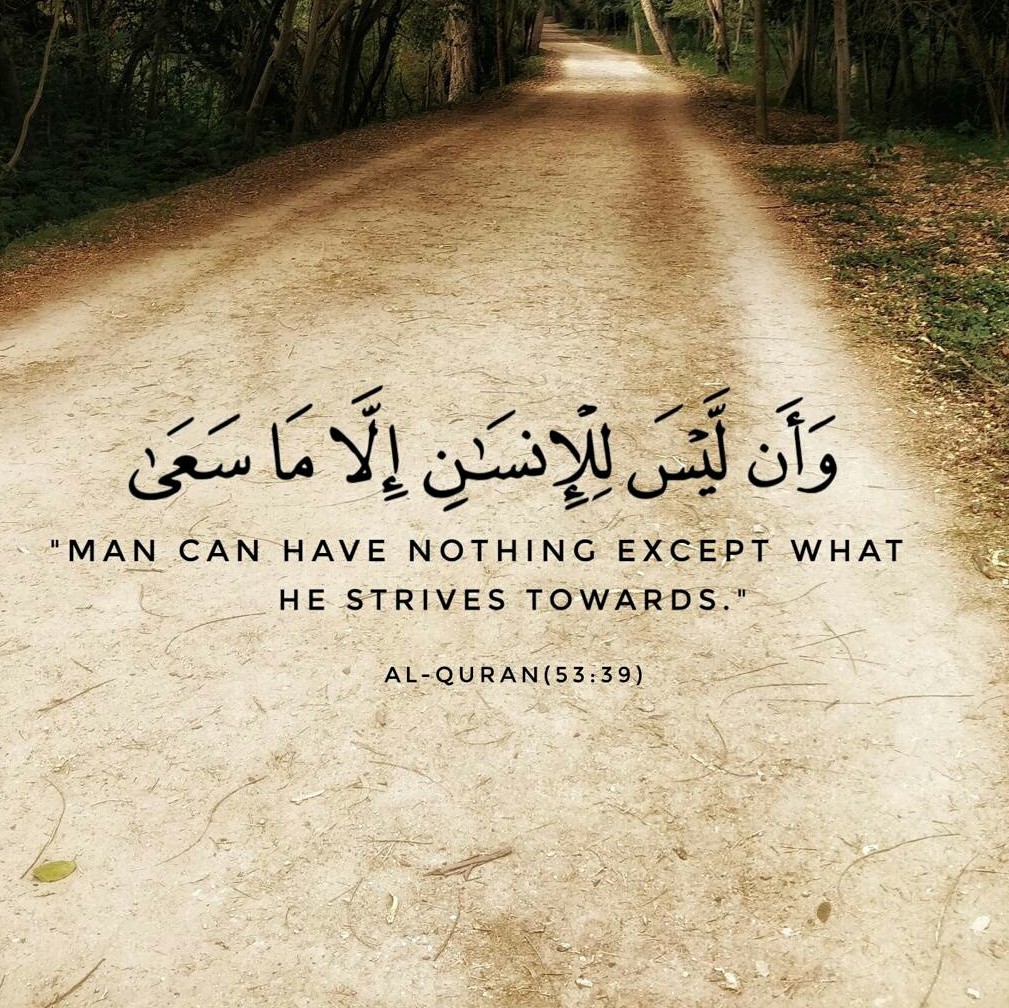 وَأَن لَّيْسَ لِلْإِنسَٰنِ إِلَّا مَا سَعَىٰ
"MAN CAN HAVE NOTHING EXCEPT WHAT
HE STRIVES TOWARDS."
AL-QURAN(53:39)